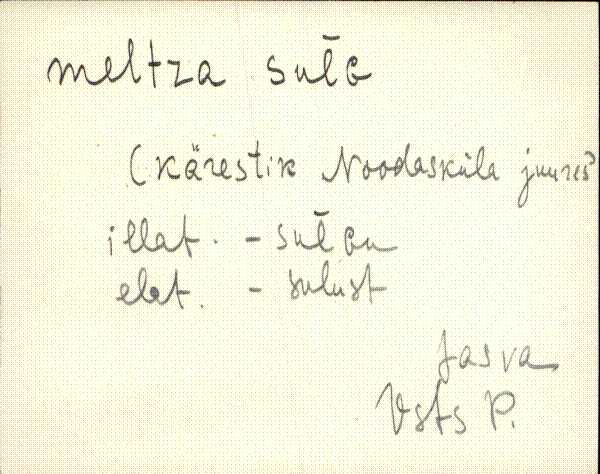 meltza sul̄G
(Kärestik Noodasküla juures)
illat. - sul̄Gu
elat. - sulust
Jasva
Vsts P.